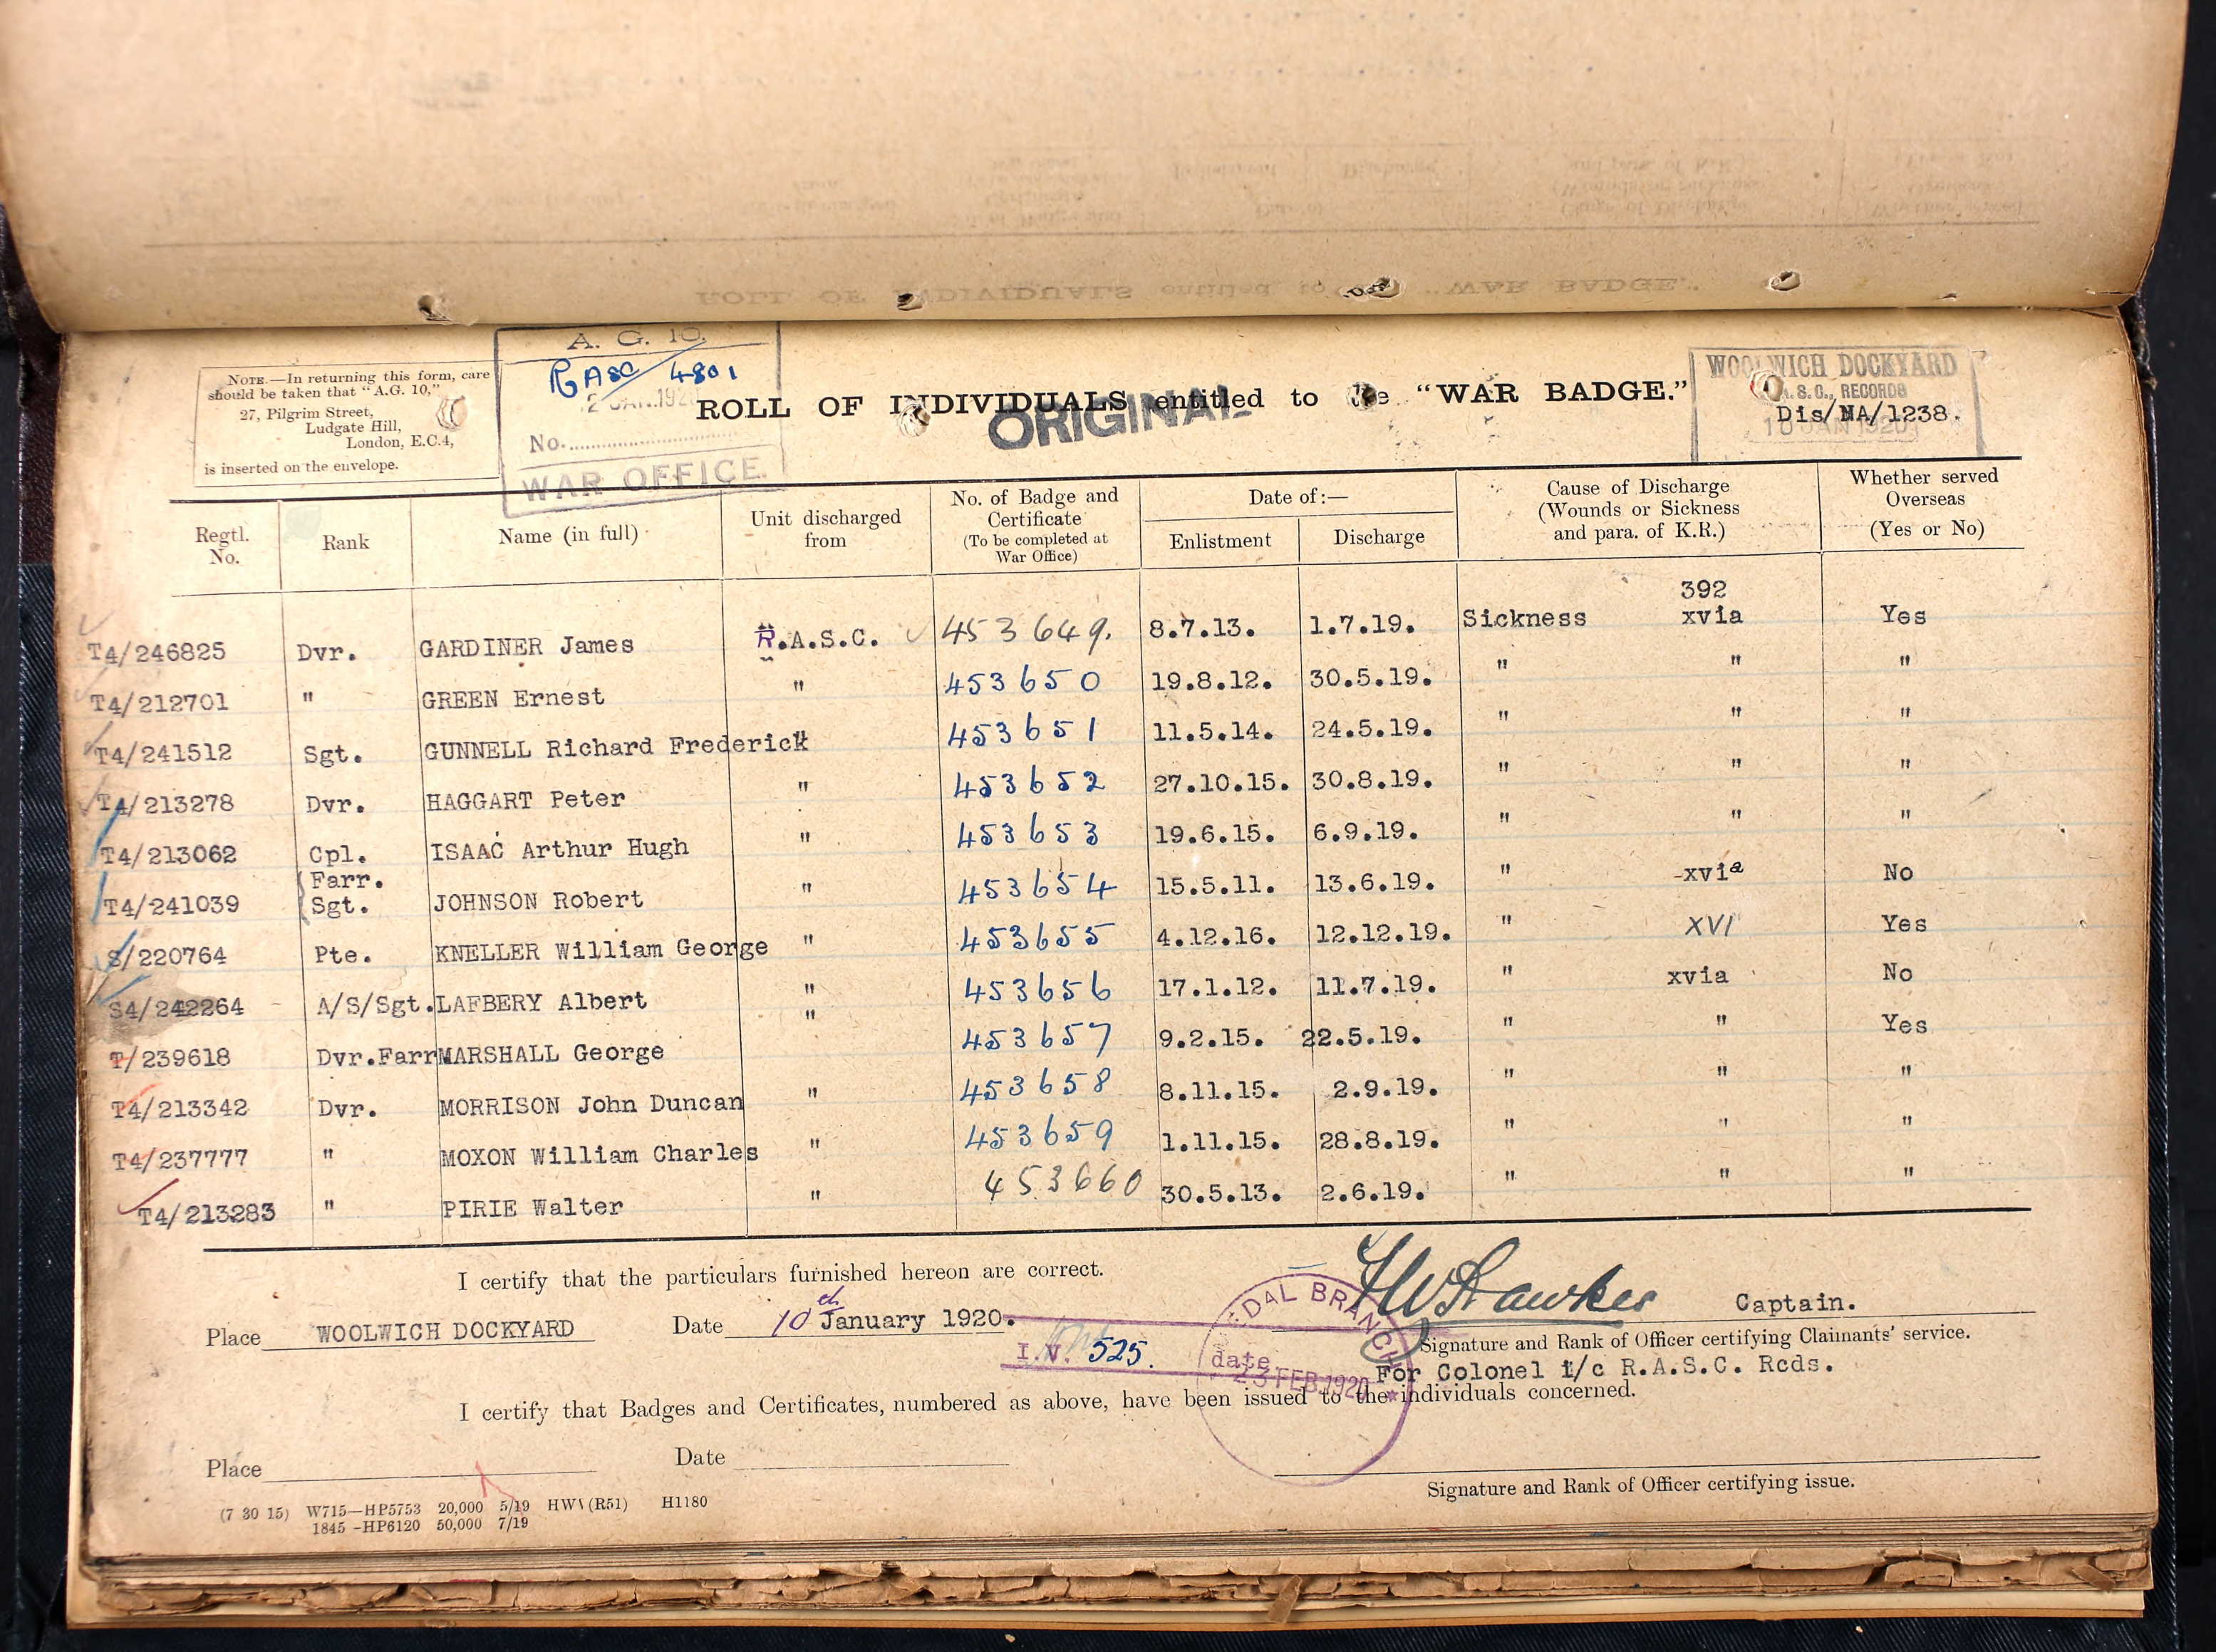 A. G. 10.
RASC 4801
2 JAN.1920
No.
WAR OFFICE.
NOTE.—In returning this form, care
should be taken that "A.G. 10,"
27, Pilgrim Street,
Ludgate Hill,
London, E.C.4,
is inserted on the envelope.
ROLL OF INDIVIDUALS entitled to the "WAR BADGE."
ORIGINAL
WOOLWICH DOCKYARD
A.S.C., RECORDS
Dis/NA/1238.
10 JAN 1920
Regtl. No. Rank Name (in full) Unit discharged from No. of Badge and Certificate (To be completed at War Office) Date of:— Enlistment Discharge Cause of Discharge (Wounds or Sickness and para. of K.R.) Whether served Overseas (Yes or No)
392
T4/246825 Dvr. GARDINER James R.A.S.C. 453649. 8.7.13. 1.7.19. Sickness xvia Yes
T4/212701 " GREEN Ernest " 453650 19.8.12. 30.5.19. " " "
T4/241512 Sgt. GUNNELL Richard Frederick " 453651 11.5.14. 24.5.19. " " "
T4/213278 Dvr. HAGGART Peter " 453652 27.10.15. 30.8.19. " " "
T4/213062 Cpl. ISAAC Arthur Hugh " 453653 19.6.15. 6.9.19. " " "
T4/241039 Farr. Sgt. JOHNSON Robert " 453654 15.5.11. 13.6.19. " xvia No
S/220764 Pte. KNELLER William George " 453655 4.12.16. 12.12.19. " XVI Yes
S4/242264 A/S/Sgt. LAFBERY Albert " 453656 17.1.12. 11.7.19. " xvia No
T/239618 Dvr.Farr MARSHALL George " 453657 9.2.15. 22.5.19. " " Yes
T4/213342 Dvr. MORRISON John Duncan " 453658 8.11.15. 2.9.19. " " "
T4/237777 " MOXON William Charles " 453659 1.11.15. 28.8.19. " " "
T4/213283 " PIRIE Walter " 453660 30.5.13. 2.6.19. " " "
I certify that the particulars furnished hereon are correct.
Place WOOLWICH DOCKYARD Date 10th January 1920. Captain.
Signature and Rank of Officer certifying Claimants' service.
For Colonel i/c R.A.S.C. Rcds.
I.V. 525. date
DAL BRANCH
23 FEB.1920
I certify that Badges and Certificates, numbered as above, have been issued to the individuals concerned.
Place Date
Signature and Rank of Officer certifying issue.
(7 30 15) W715—HP5753 20,000 5/19 HWV(R51) H1180
1845 -HP6120 50,000 7/19